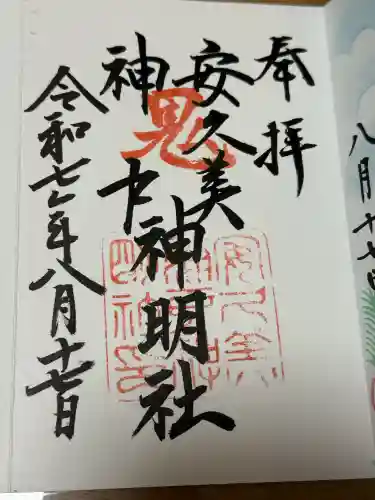 奉拝
安久美
神戸神明社
鬼
令和七年八月十七日
八月十七日